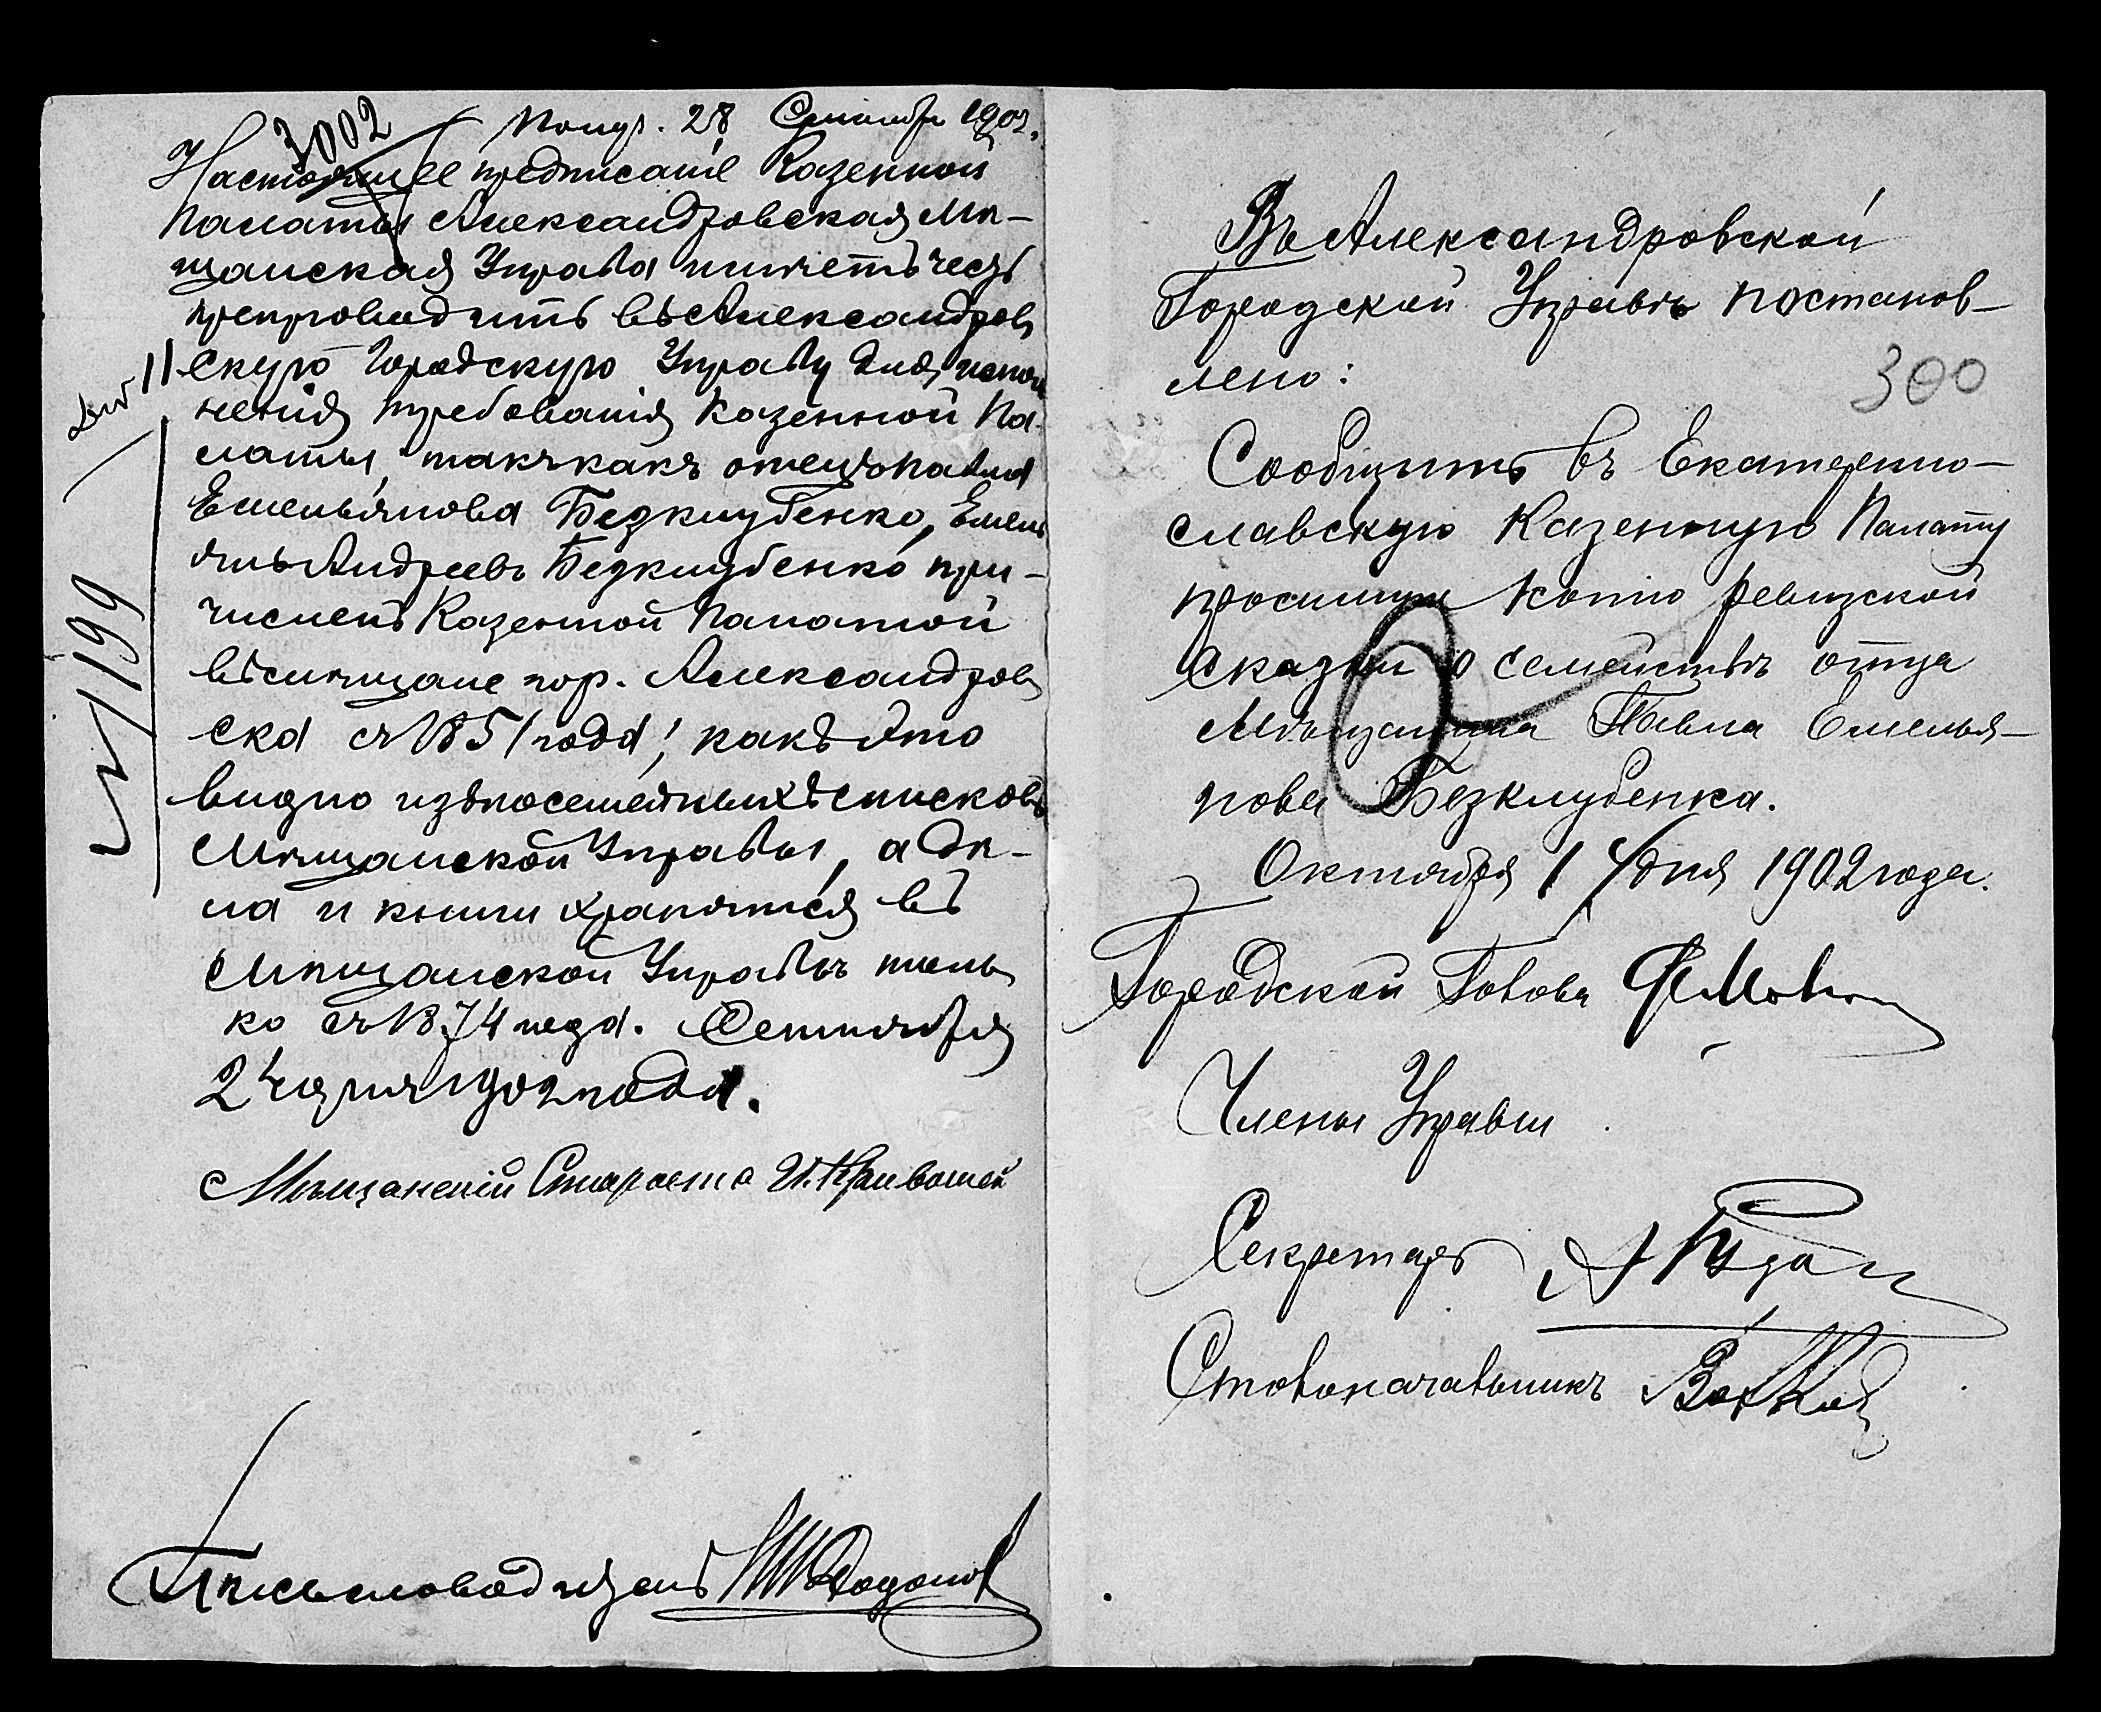 3002
Получ. 28 Сентября 1902.
Настоящее предписаніе Казенной
Палаты Александровская Мѣ-
щанская Управа имѣетъ честь
препроводить въ Александров
скую Городскую Управу для испол
ненія требованія Казенной Па-
латы, такъ какъ отецъ Павла
Емельянова Безклубенко, Емель
янъ Андреевъ Безклубенко при-
численъ Казенной Палатой
въ мѣщане гор. Александров
ска съ 1851 года, какъ это
видно изъ посемейныхъ списковъ
Мѣщанской Управы, а дѣ-
ла и книги хранятся въ
Мѣщанской Управѣ толь
ко съ 1874 года. Сентября
24 дня 1902 года.
Мѣщанскій Староста И. Кривошей
Письмоводитель
№ 1199
Въ Александровской
Городской Управѣ постанов-
лено:
300
Сообщить въ Екатерино-
славскую Казенную Палату
просимую копію ревизской
сказки о семействѣ отца
Мѣщанина Павла Емелья-
нова Безклубенка.
Октября 1 дня 1902 года.
Городской Голова
Члены Управы
Секретарь
Столоначальникъ